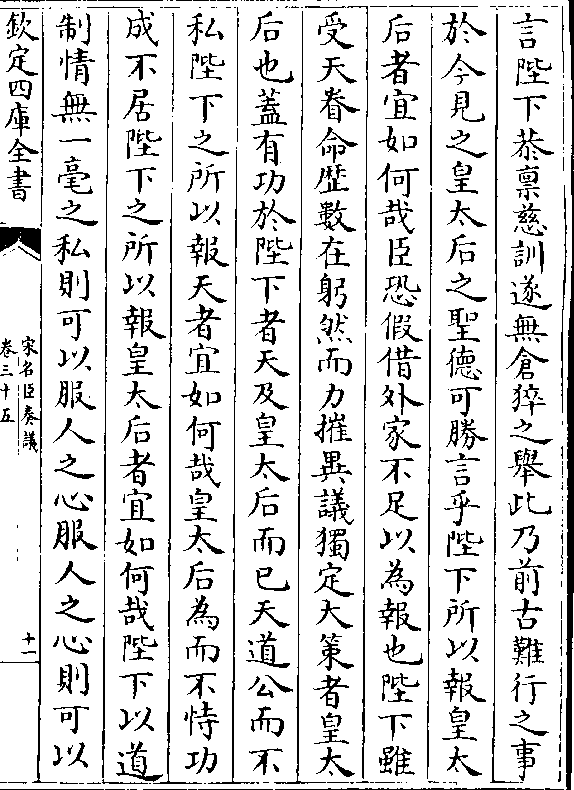 言陛下恭禀慈訓遂無倉猝之舉此乃前古難行之事
於今見之皇太后之聖德可勝言乎陛下所以報皇太
后者宜如何哉臣恐假借外家不足以為報也陛下雖
受天眷命歴數在躬然而力摧異議獨定大策者皇太
后也蓋有功於陛下者天及皇太后而已天道公而不
私陛下之所以報天者宜如何哉皇太后為而不恃功
成不居陛下之所以報皇太后者宜如何哉陛下以道
制情無一毫之私則可以服人之心服人之心則可以
欽定四庫全書
宋名臣奏議
卷三十五
十一